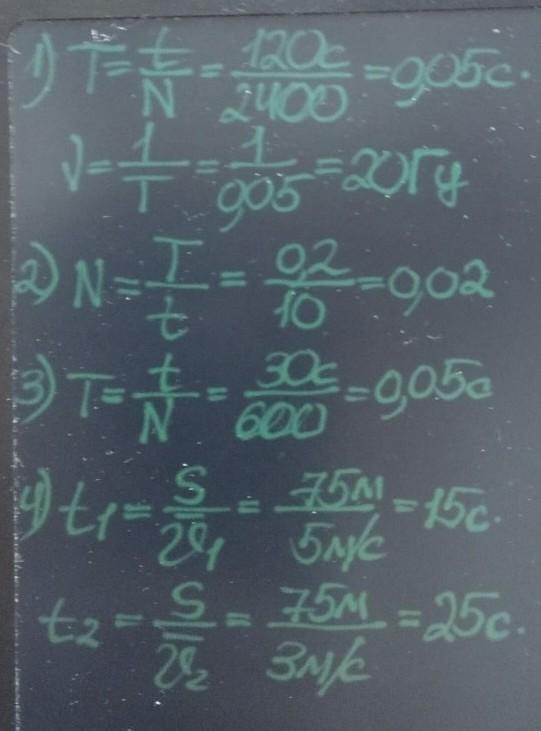 1) T = t/N = 120с/2400 = 0,05с.
ν = 1/T = 1/0,05 = 20Гц
2) N = T/t = 0,2/10 = 0,02
3) T = t/N = 30с/600 = 0,05с
4) t₁ = S/υ₁ = 75м/5м/с = 15с.
t₂ = S/υ₂ = 75м/3м/с = 25с.